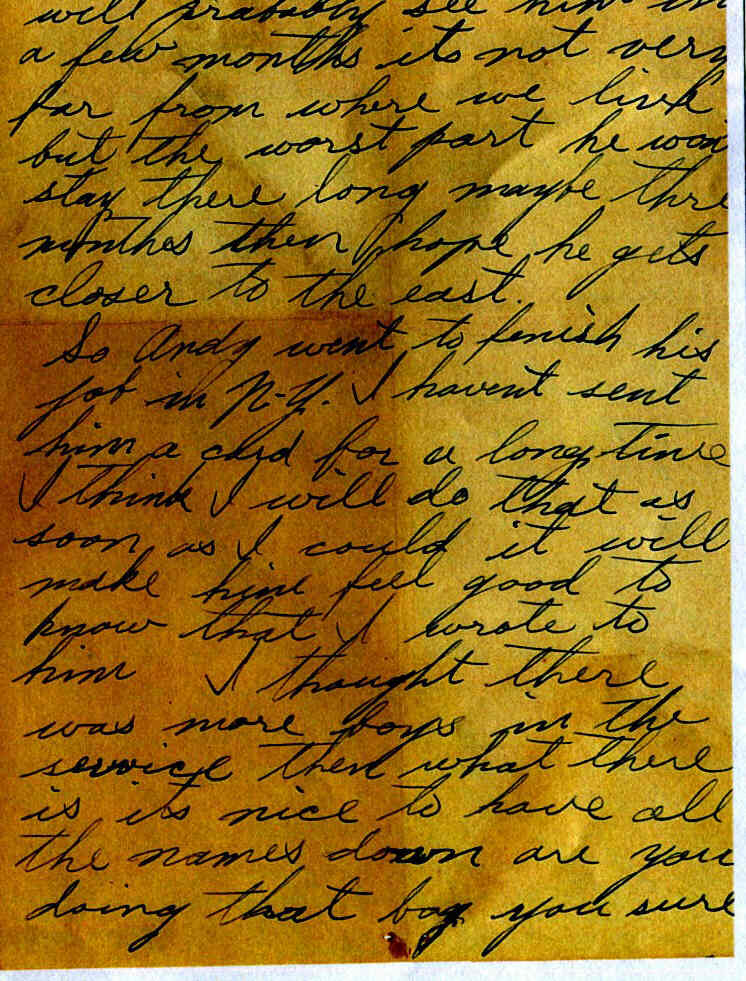 will probably see him in
a few months its not very
far from where we live
but the worst part he won
stay there long maybe thre
months then I hope he gets
closer to the east.
So Andy went to finish his
job in N-Y. I havent sent
him a card for a long time
I think I will do that as
soon as I could it will
make him feel good to
know that I wrote to
him I thought there
was more boys in the
service then what there
is its nice to have all
the names down are you
doing that boy you sure